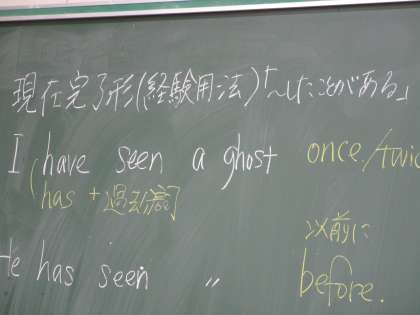 現在完了形(経験用法)「〜したことがある」
I have seen a ghost once/twic
(has + 過去分詞
以前に
He has seen 〃 before.